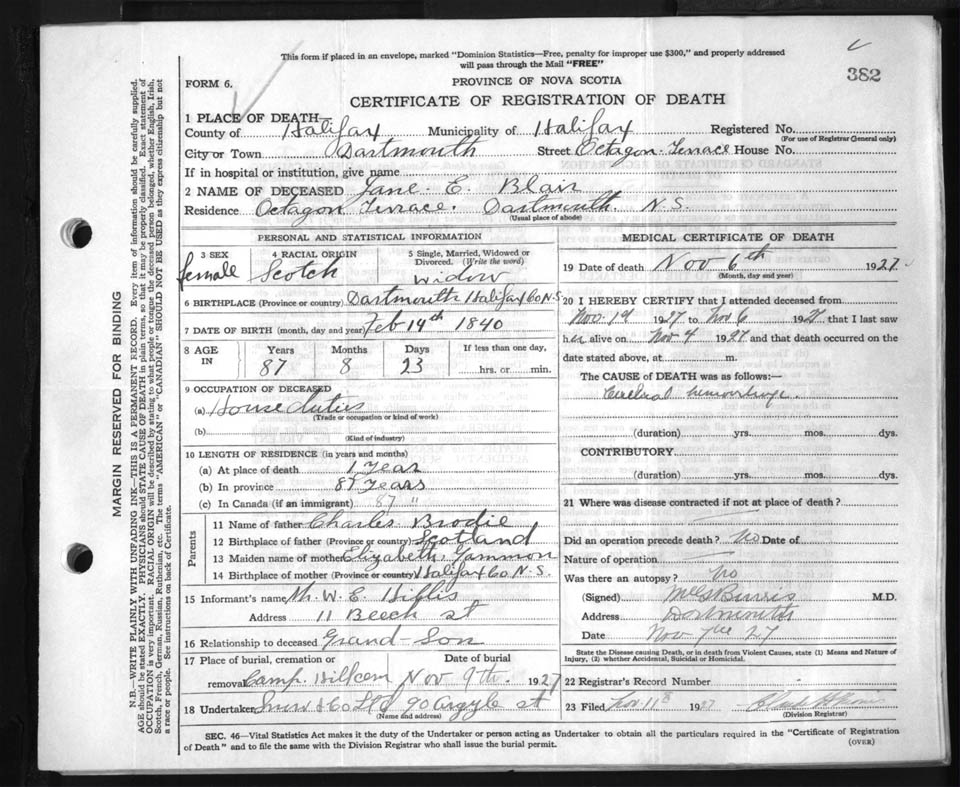 This form if placed in an envelope, marked "Dominion Statistics—Free, penalty for improper use $300," and properly addressed
will pass through the Mail "FREE"
382
FORM 6.
PROVINCE OF NOVA SCOTIA
CERTIFICATE OF REGISTRATION OF DEATH
1 PLACE OF DEATH—
County of Halifax Municipality of Halifax Registered No.
(For use of Registrar General only)
City or Town Dartmouth Street Octagon Terrace House No.
If in hospital or institution, give name
2 NAME OF DECEASED Jane. E. Blair
Residence Octagon Terrace. Dartmouth. N.S.
(Usual place of abode)
PERSONAL AND STATISTICAL INFORMATION
3 SEX
female
4 RACIAL ORIGIN
Scotch
5 Single, Married, Widowed or
Divorced. (Write the word)
widow
6 BIRTHPLACE (Province or country) Dartmouth Halifax Co N.S.
7 DATE OF BIRTH (month, day and year) Feb 14th 1840
8 AGE IN
Years Months Days If less than one day,
87 8 23 hrs. or min.
9 OCCUPATION OF DECEASED
(a) House duties
(Trade or occupation or kind of work)
(b)
(Kind of industry)
10 LENGTH OF RESIDENCE (in years and months)
(a) At place of death 1 Year
(b) In province 87 Years
(c) In Canada (if an immigrant) 87 "
Parents
11 Name of father Charles Brodie
12 Birthplace of father (Province or country) Scotland
13 Maiden name of mother Elizabeth Gammon
14 Birthplace of mother (Province or country) Halifax Co N.S.
15 Informant's name M. W. E. Hillis
Address 11 Beech st
16 Relationship to deceased Grand-Son
17 Place of burial, cremation or Date of burial
removal Camp. Hill cem Nov 9th. 1927
18 Undertaker Snow & Co Ltd 90 Argyle st
(Name and address)
MEDICAL CERTIFICATE OF DEATH
19 Date of death Nov 6th 1927
(Month, day and year)
20 I HEREBY CERTIFY that I attended deceased from
Nov. 1927 to Nov 6 1927 that I last saw
her alive on Nov 4 1927 and that death occurred on the
date stated above, at m.
The CAUSE of DEATH was as follows:—
Cerebral hemorrhage.
(duration) yrs. mos. dys.
CONTRIBUTORY
(duration) yrs. mos. dys.
21 Where was disease contracted if not at place of death?
Did an operation precede death? No Date of
Nature of operation
Was there an autopsy? No
(Signed) M.D.
Address Dartmouth
Date Nov 7th 27
State the Disease causing Death, or in death from Violent Causes, state (1) Means and Nature of
Injury, (2) whether Accidental, Suicidal or Homicidal.
22 Registrar's Record Number
23 Filed Nov 11 1927
(Division Registrar)
SEC. 46—Vital Statistics Act makes it the duty of the Undertaker or person acting as Undertaker to obtain all the particulars required in the "Certificate of Registration
of Death" and to file the same with the Division Registrar who shall issue the burial permit.
(OVER)
MARGIN RESERVED FOR BINDING
N.B.—WRITE PLAINLY WITH UNFADING INK—THIS IS A PERMANENT RECORD. Every item of information should be carefully supplied.
AGE should be stated EXACTLY. PHYSICIANS should STATE CAUSE OF DEATH in plain terms, so that it may be properly classified. Exact statement of
OCCUPATION is very important. RACIAL ORIGIN will be described by stating to what people or tongue the deceased person belonged, whether English, Irish,
Scotch, French, German, Russian, Ruthenian, etc. The terms "AMERICAN" or "CANADIAN" SHOULD NOT BE USED as they express citizenship but not
a race or people. See instructions on back of Certificate.